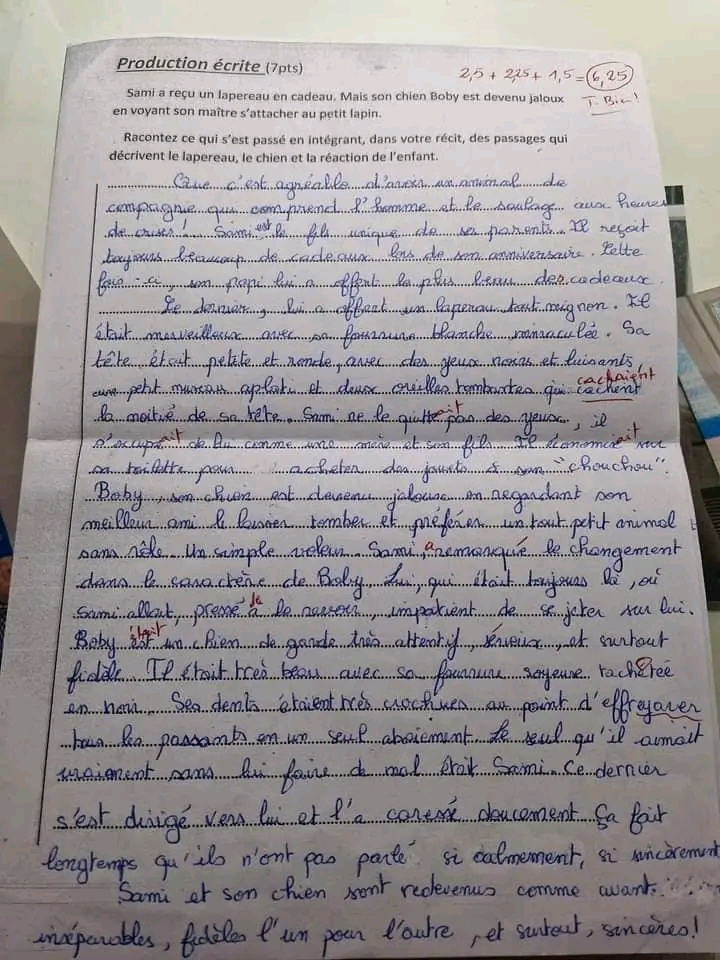 Production écrite (7pts)
2,5 + 2,25 + 1,5 = 6,25
T. Bien!
Sami a reçu un lapereau en cadeau. Mais son chien Boby est devenu jaloux
en voyant son maître s'attacher au petit lapin.
Racontez ce qui s'est passé en intégrant, dans votre récit, des passages qui
décrivent le lapereau, le chien et la réaction de l'enfant.
Que c'est agréable d'avoir un animal de
compagnie qui comprend l'homme et le soulage aux heures
de crises! Sami est le fils unique de ses parents. Il reçoit
toujours beaucoup de cadeaux lors de son anniversaire. Cette
fois-ci, son papi lui a offert le plus beau des cadeaux.
Ce dernier, lui a offert un laperau tout mignon. Il
était merveilleux avec sa fourrure blanche immaculée. Sa
tête était petite et ronde, avec des yeux noirs et luisants,
petit museau aplati et deux oreilles tombantes qui cachent cachaient
la moitié de sa tête. Sami ne le quittait pas des yeux, il
s'occupait de lui comme une mère et son fils. Il économisait sur
sa toilette pour acheter des jouets à son "chouchou".
Boby, son chien est devenu jaloux en regardant son
meilleur ami le laisser tomber et préférer un tout petit animal
sans rôle. Un simple voleur. Sami, a remarqué le changement
dans le caractère de Boby. Lui, qui était toujours là, où
Sami allait, pressé à le revoir, impatient de se jeter sur lui.
de
Boby était un chien de garde très attentif, sérieux, et surtout
fidèle. Il était très beau avec sa fourrure soyeuse rachetée
en noir. Ses dents étaient très crochues au point d'effreyarer
tous les passants en un seul aboiement. Le seul qu'il aimait
vraiment sans lui faire de mal était Sami. Ce dernier
s'est dirigé vers lui et l'a caressé doucement. Ça fait
longtemps qu'ils n'ont pas parlé si calmement, si sincèrement
Sami et son chien sont redevenus comme avant.
inséparables, fidèles l'un pour l'autre, et surtout, sincères!